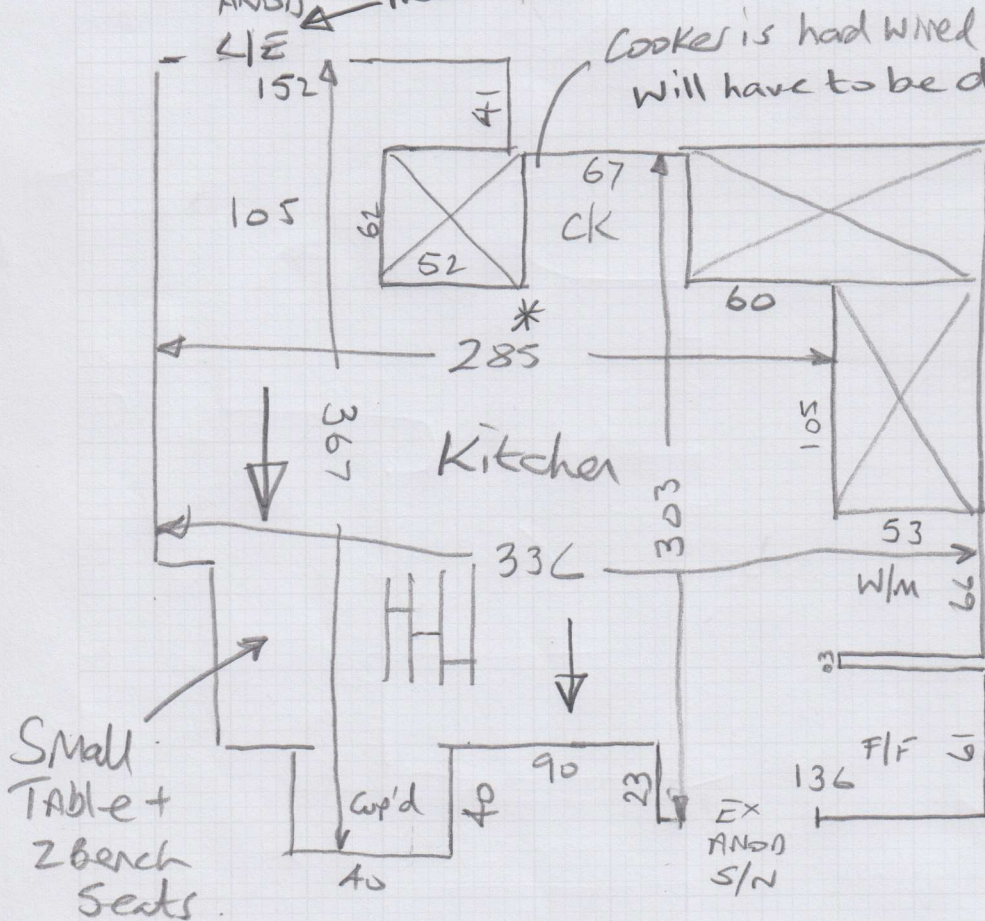 ANOD
L/E
152
41
Cooker is had wired
will have to be d
105
62
52
67
CK
60
*
285
105
367
Kitchen
303
53
33
W/M
66
03
Small
Table +
2 Bench
Seats
Cup'd
40
40
90
23
EX
ANOD
S/N
136
F/F
61